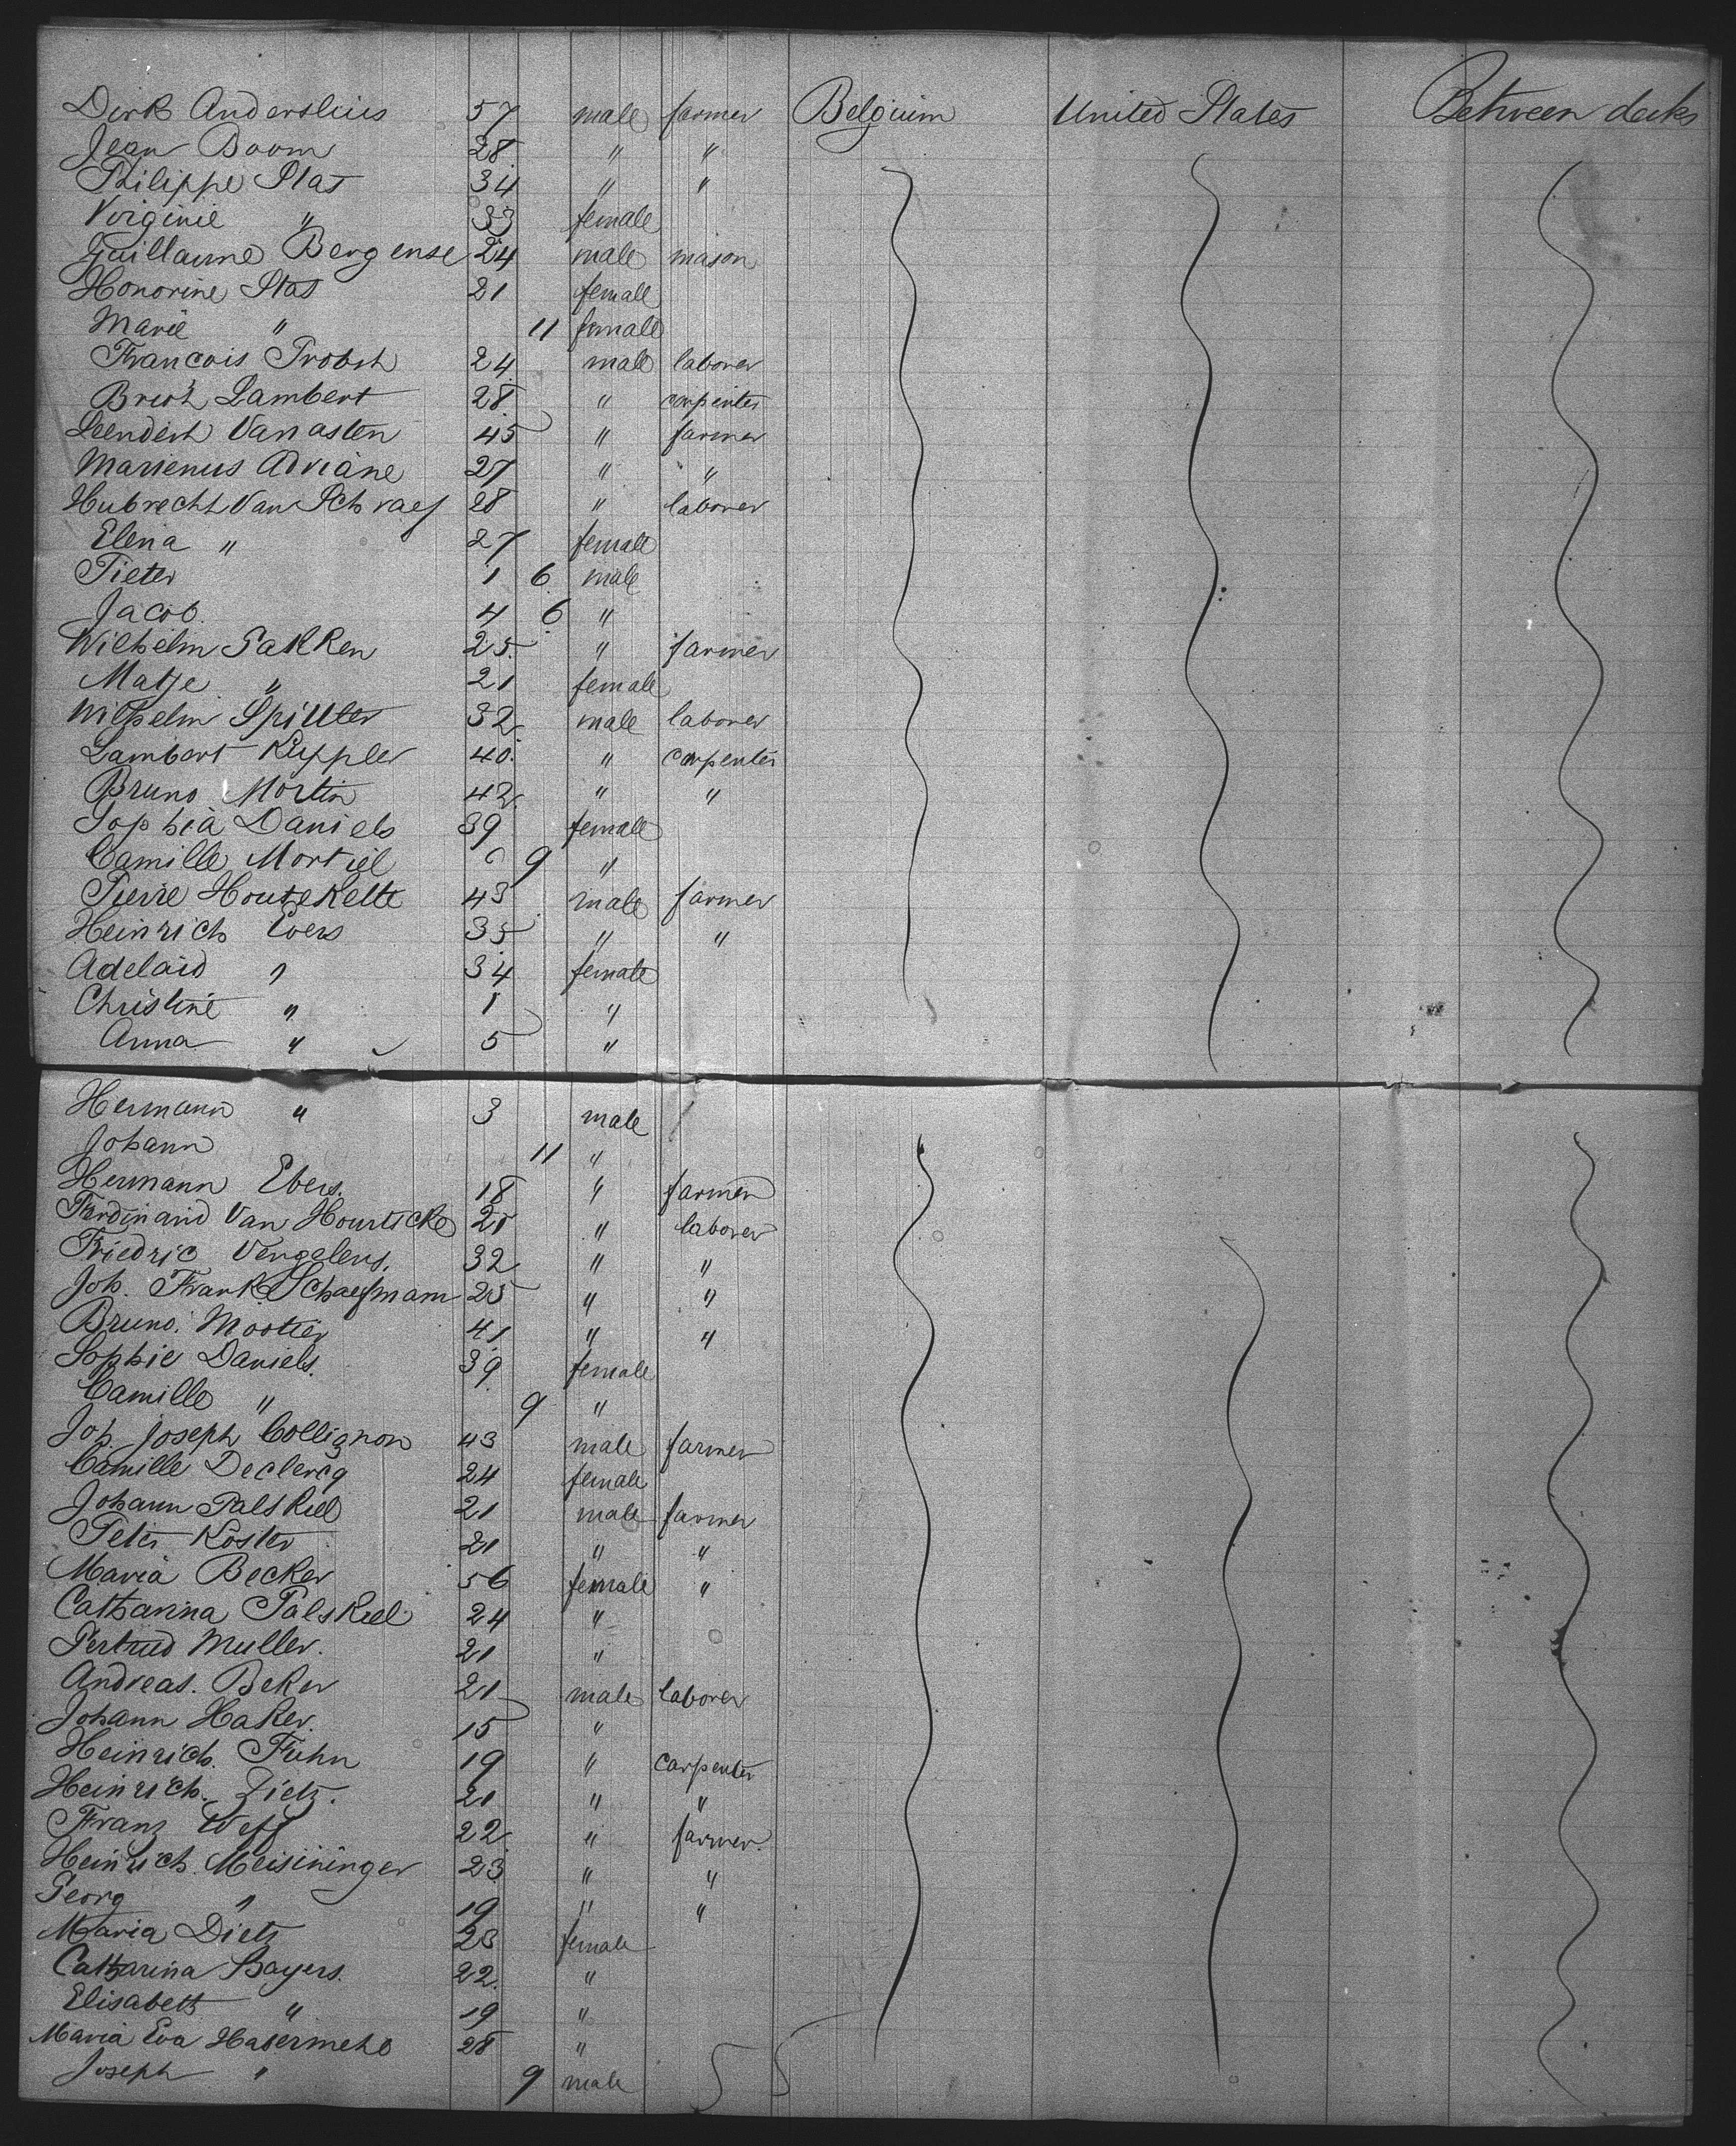 Dirk Anderslius 57 male farmer Belgium United States Between decks
Jean Boom 28 " "
Philippe Stas 34 " "
Virginie " 33 female
Guillaume Bergense 24 male mason
Honorine Stas 21 female
Marie " 11 female
Francois Probst 24 male laborer
Lambert 28 " carpenter
Leendert Van asten 45 " farmer
Marienus Adriane 27 " "
Hubrecht Van Schraef 28 " laborer
Elena " 27 female
Pieter 1 6 male
Jacob 4 6 "
Wilhelm Pakken 25 " farmer
Matje " 21 female
Wilhelm Spittler 32 male laborer
Lambert Küppler 40 " carpenter
Bruno Mortin 42 " "
Sophia Daniels 39 female
Camille Mortiel 9 "
Pierre Houtekette 43 male farmer
Heinrich Evers 35 " "
Adelaid " 34 female
Christine " 1 "
Anna " 5 "
Hermann " 3 male
Johann 11 "
Hermann Ebers. 18 " farmer
Ferdinand Van Hourtscke 21 " laborer
Friedric Vengelens. 32 " "
Joh. Frank Schaefmam 25 " "
Bruno. Mostier 41 " "
Sophie Daniels. 39 female
Camille " 9 "
Joh. Joseph Collignon 43 male farmer
Camille Declercq 24 female
Johann Palskill 21 male farmer
Peter Koster 21 " "
Maria Becker 56 female "
Catharina Palskill 24 "
Gertrud Muller. 21 "
Andreas. Beker 21 male laborer
Johann Haker. 15 "
Heinrich. Fuhn 19 " carpenter
Heinrich. Zietz. 21 " "
Franz Weff 22 " farmer
Heinrich. Meisininger 23 " "
Georg " 19 " "
Maria Dietz 23 female
Catharina Bayers. 22. "
Elisabeth " 19 "
Maria Eva Hasermehl 28 "
Joseph " 9 male 55